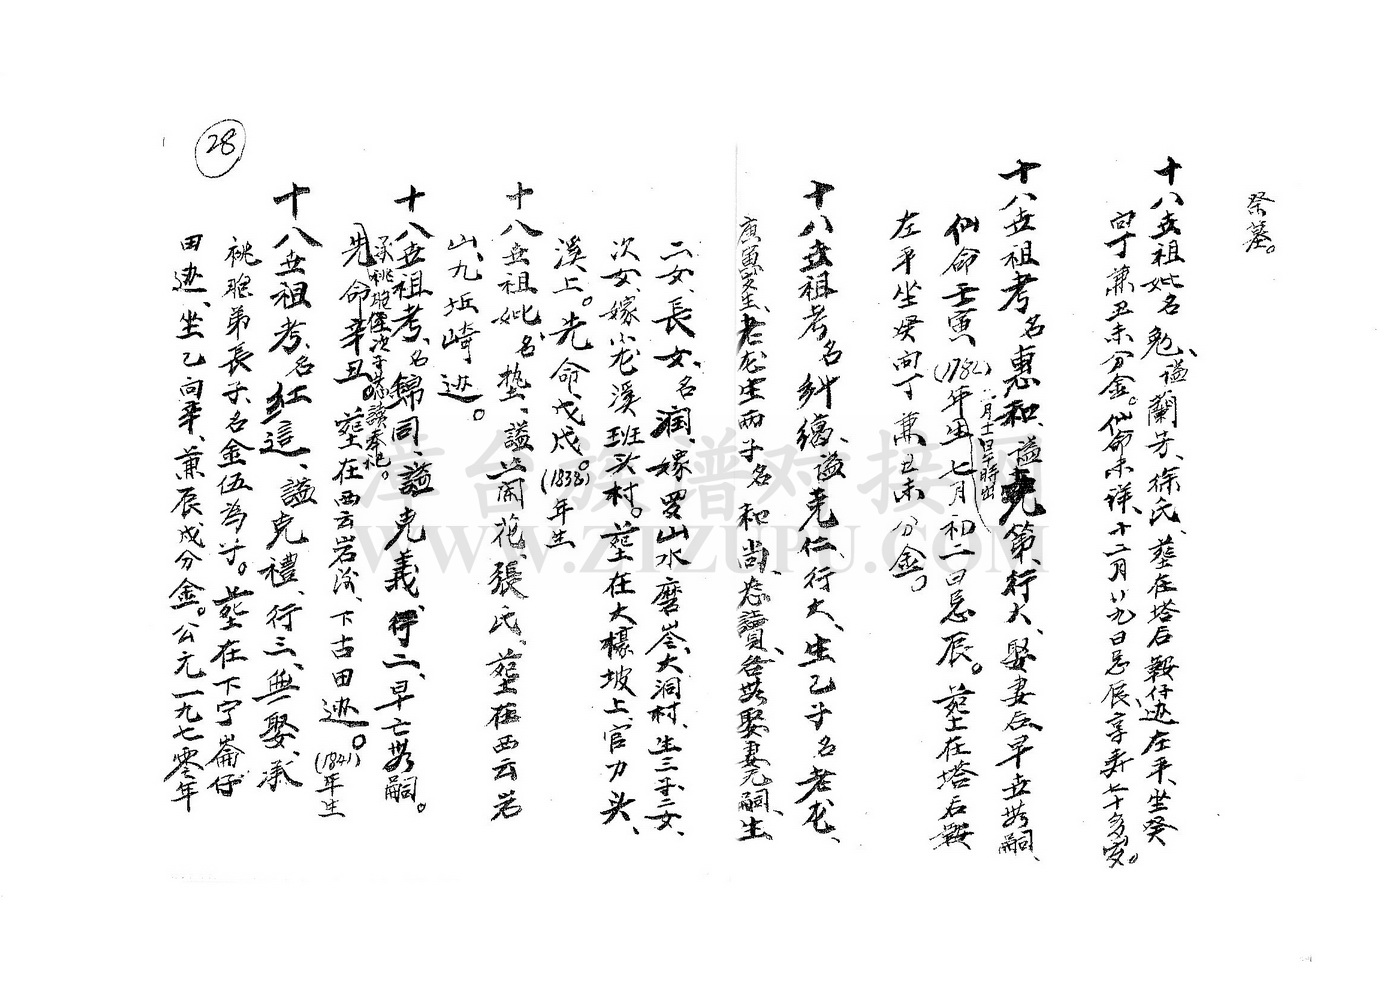 祭墓。
十八世祖妣名勉、谥蘭芳、徐氏、塟在塔后鞍仔边左平、坐癸
向丁兼丑未分金。仙命未详、十二月廿九日忌辰、享寿七十多岁。
十八世祖考名惠和、谥克第行大、娶妻后早世無嗣、
仙命壬寅(1782)年生七月初一日忌辰。塟在塔后鞍
左平坐癸向丁兼丑未分金。
十八世祖考名纠、谥克仁、行大、生乙子名老龙、
庚寅年生、老龙生两子名和尚、忠讃、各無娶妻无嗣、生
二女、長女、名润、嫁罗山水磨崙、大洞村、生三子二女、
次女、嫁小尨溪班头村。塟在大檺坡上、官刀头、
溪上。先命戊戌。(1838)年生
十八世祖妣、名垫、谥閙花、張氏、塟在西云岩
山、九坵崎边。
十八世祖考、名錦同、谥克義、行二、早亡無嗣。
承祧胞侄次子忠讃奉祀。
先命辛丑。塟在西云岩后、下古田边。(1841)年生
十八世祖考、名紅這、謚克禮、行三、無娶、承
祧胞弟長子、名金伍為子。塟在下宁崙仔
田边、坐乙向辛、兼辰戌分金。公元一九七零年
28
库台族谱对接网
WWW.ZTZUPU.COM